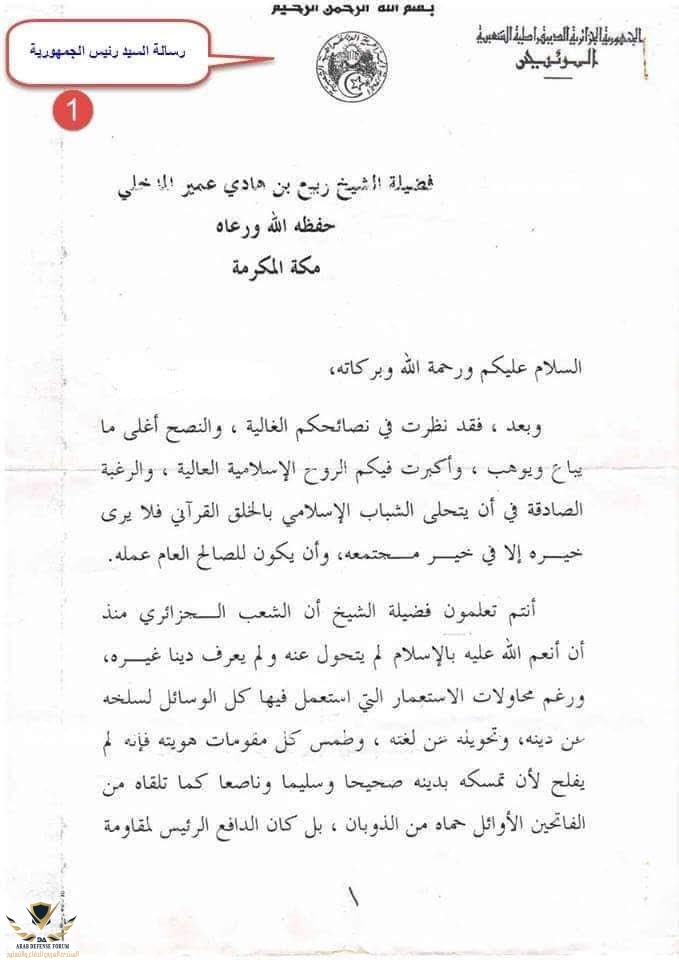 بسم الله الرحمن الرحيم
الجمهورية الجزائرية الديمقراطية الشعبية
الرئيس
رسالة السيد رئيس الجمهورية
1
فضيلة الشيخ ربيع بن هادي عمير المدخلي
حفظه الله ورعاه
مكة المكرمة
السلام عليكم ورحمة الله وبركاته،
وبعد ، فقد نظرت في نصائحكم الغالية ، والنصح أغلى ما
يباع ويوهب ، وأكبرت فيكم الروح الإسلامية العالية ، والرغبة
الصادقة في أن يتحلى الشباب الإسلامي بالخلق القرآني فلا يرى
خيره إلا في خير مجتمعه، وأن يكون للصالح العام عمله.
أنتم تعلمون فضيلة الشيخ أن الشعب الجزائري منذ
أن أنعم الله عليه بالإسلام لم يتحول عنه ولم يعرف دينا غيره،
ورغم محاولات الاستعمار التي استعمل فيها كل الوسائل لسلخه
عن دينه، وتحويله عن لغته ، وطمس كل مقومات هويته فإنه لم
يفلح لأن تمسكه بدينه صحيحا وسليما وناصعا كما تلقاه من
الفاتحين الأوائل حماه من الذوبان ، بل كان الدافع الرئيس لمقاومة
١
ARAB DEFENSE FORUM
المنتدى العربي للدفاع والتسليح